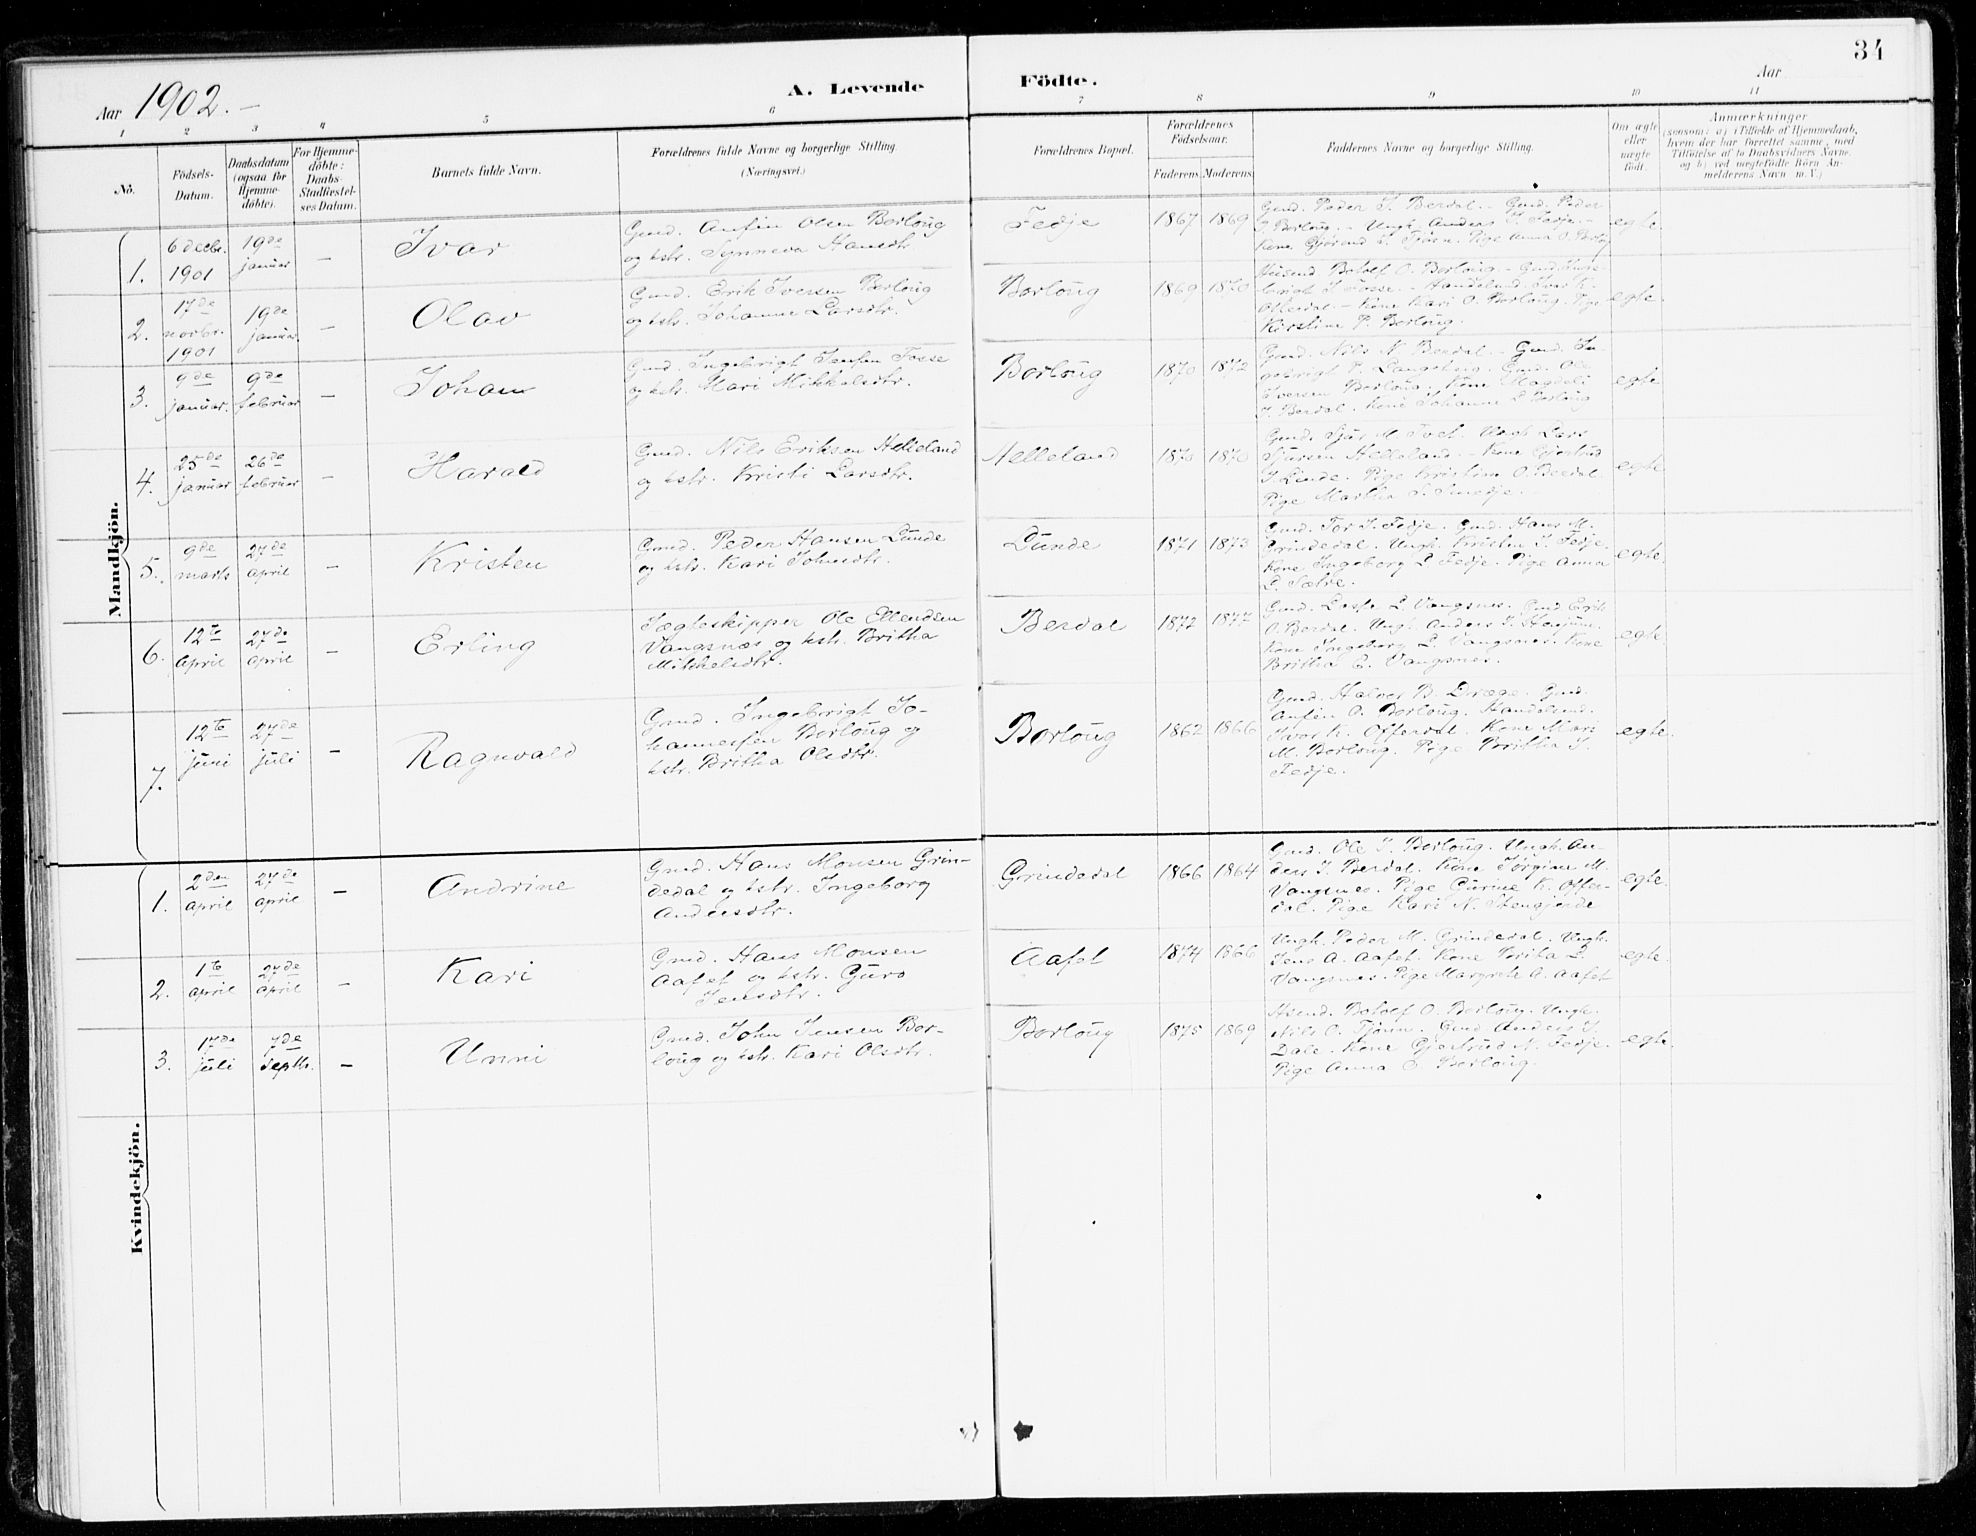 34
Aar 1902.—
A. Levende
Födte.
Aar
1 2 3 4 5 6 7 8 9 10 11
No.
Födsels-
Datum.
Daabsdatum
(ogsaa for
Hjemme-
döbte).
For Hjemme-
döbte:
Daabs-
Stadfæstel-
ses Datum.
Barnets fulde Navn.
Forældrenes fulde Navne og borgerlige Stilling.
(Næringsvei.)
Forældrenes Bopæl.
Forældrenes
Födselsaar.
Faderens. Moderens.
Faddernes Navne og borgerlige Stilling.
Om ægte
eller
uægte
födt.
Anmærkninger
(saasom: a) i Tilfælde af Hjemmedaab,
hvem der har forrettet samme, med
Tilföielse af to Daabsvidners Navne,
og b) ved uægtefödte Börn An-
melderens Navn m. V.)
Mandkjön.
1.
6 decbr.
1901
19de
januar
—
Ivar
Gmd. Anfin Olsen Borloug
og hstr. Synneva Hansdtr
Fedje
1867 1869
Gmd. Peder I. Berdal. — Gmd. Peder
Borloug. — Ungk. Anders I. Fedje. —
Kone Tjörn. Pige Anna O. Borloug
egte.
2.
17de
novbr.
1901
19de
januar
—
Olav
Gmd. Erik Iversen Borloug
og hstr. Johanne Larsdtr.
Borloug
1869 1870
Husmd. Botolf O. Borloug. — Gmd. Inge-
brigt J. Fosse. — Handelsmd. Ivar K.
Offerdal — Kone Kari O. Borloug. Pige
Kirstine P. Borloug.
egte.
3.
9de
januar.
9de
februar
—
Johan
Gmd. Ingebrigt Jensen Fosse
og hstr. Mari Mikkelsdtr.
Borloug
1870 1872
Gmd. Nils N. Berdal. — Gmd. In-
gebrigt P. Gmd. Ole
Iversen Borloug. Kone Magdeli
I. Berdal. Kone Johanne L. Borloug
egte.
4.
25de
januar
26de
februar
—
Harald
Gmd. Nils Eriksen Helleland
og hstr. Kristi Larsdtr.
Helleland
1870 1870
Gmd. Sjur M. Tvet. Ungk. Lars
Sjursen Helleland. — Kone Gjertrud
I. Linde. Pige Kristine O. Berdal
Pige Martha S. Smedje.
egte.
5.
9de
marts
27de
April
—
Kristen
Gmd. Peder Hansen Lunde
og hstr. Kari Johnsdtr.
Lunde
1871 1873
Gmd. Tor I. Fedje. Gmd. Hans M.
Grindedal. Ungk. Kristen I. Fedje.
Kone Ingeborg L. Fedje. Pige Anna
L. Sætre.
egte.
6.
12te
April
27de
April
—
Erling
Jægteskipper Ole Ellendsen
Vangsnæs og hstr. Britha
Mikkelsdtr.
Berdal
1872 1877
Gmd. L. Vangsnes. Gmd. Erik
O. Berdal. Ungk. Anders I. Henjum.
Kone Ingeborg L. Vangsnes. Kone
Britha E. Vangsnes.
egte.
7.
12te
juni
27de
juli
—
Ragnvald
Gmd. Ingebrigt Jo-
hannessen Borloug og
hstr. Britha Olsdtr.
Borloug
1862 1866
Gmd. Halvor B. Dræge. Gmd.
Anfin O. Borloug. Handelsmd.
Ivar K. Offerdal. Kone Mari
M. Borloug. Pige Britha I.
Fedje.
egte.
Kvindekjön.
1.
2den
April
27de
April
—
Andrine
Gmd. Hans Monsen Grin-
dedal og hstr. Ingeborg
Andersdtr.
Grindedal
1866 1864
Gmd. Ole I. Borloug. Ungk. An-
ders I. Berdal. Kone Jörgine M.
Vangsnes. Pige Gurine K. Offer-
dal. Pige Kari N. Stengjerde
egte.
2.
1te
April
27de
April
—
Kari
Gmd. Hans Monsen
Aafet og hstr. Guro
Jensdtr.
Aafet
1874 1866
Ungk. Peder M. Grindedal. Ungk.
Jens A. Aafet. Kone Britha L.
Vangsnes. Pige Margrete A. Aafet
egte.
3.
17de
juli
7de
septbr.
—
Unni
Gmd. John Jensen Bor-
loug og hstr. Kari Olsdtr.
Borloug
1875 1869
Husmd. Botolf O. Borloug. Ungk.
Nils O. Tjörn. Gmd. Anders I.
Dale. Kone Gjertrud N. Fedje.
Pige Anna O. Borloug.
egte.